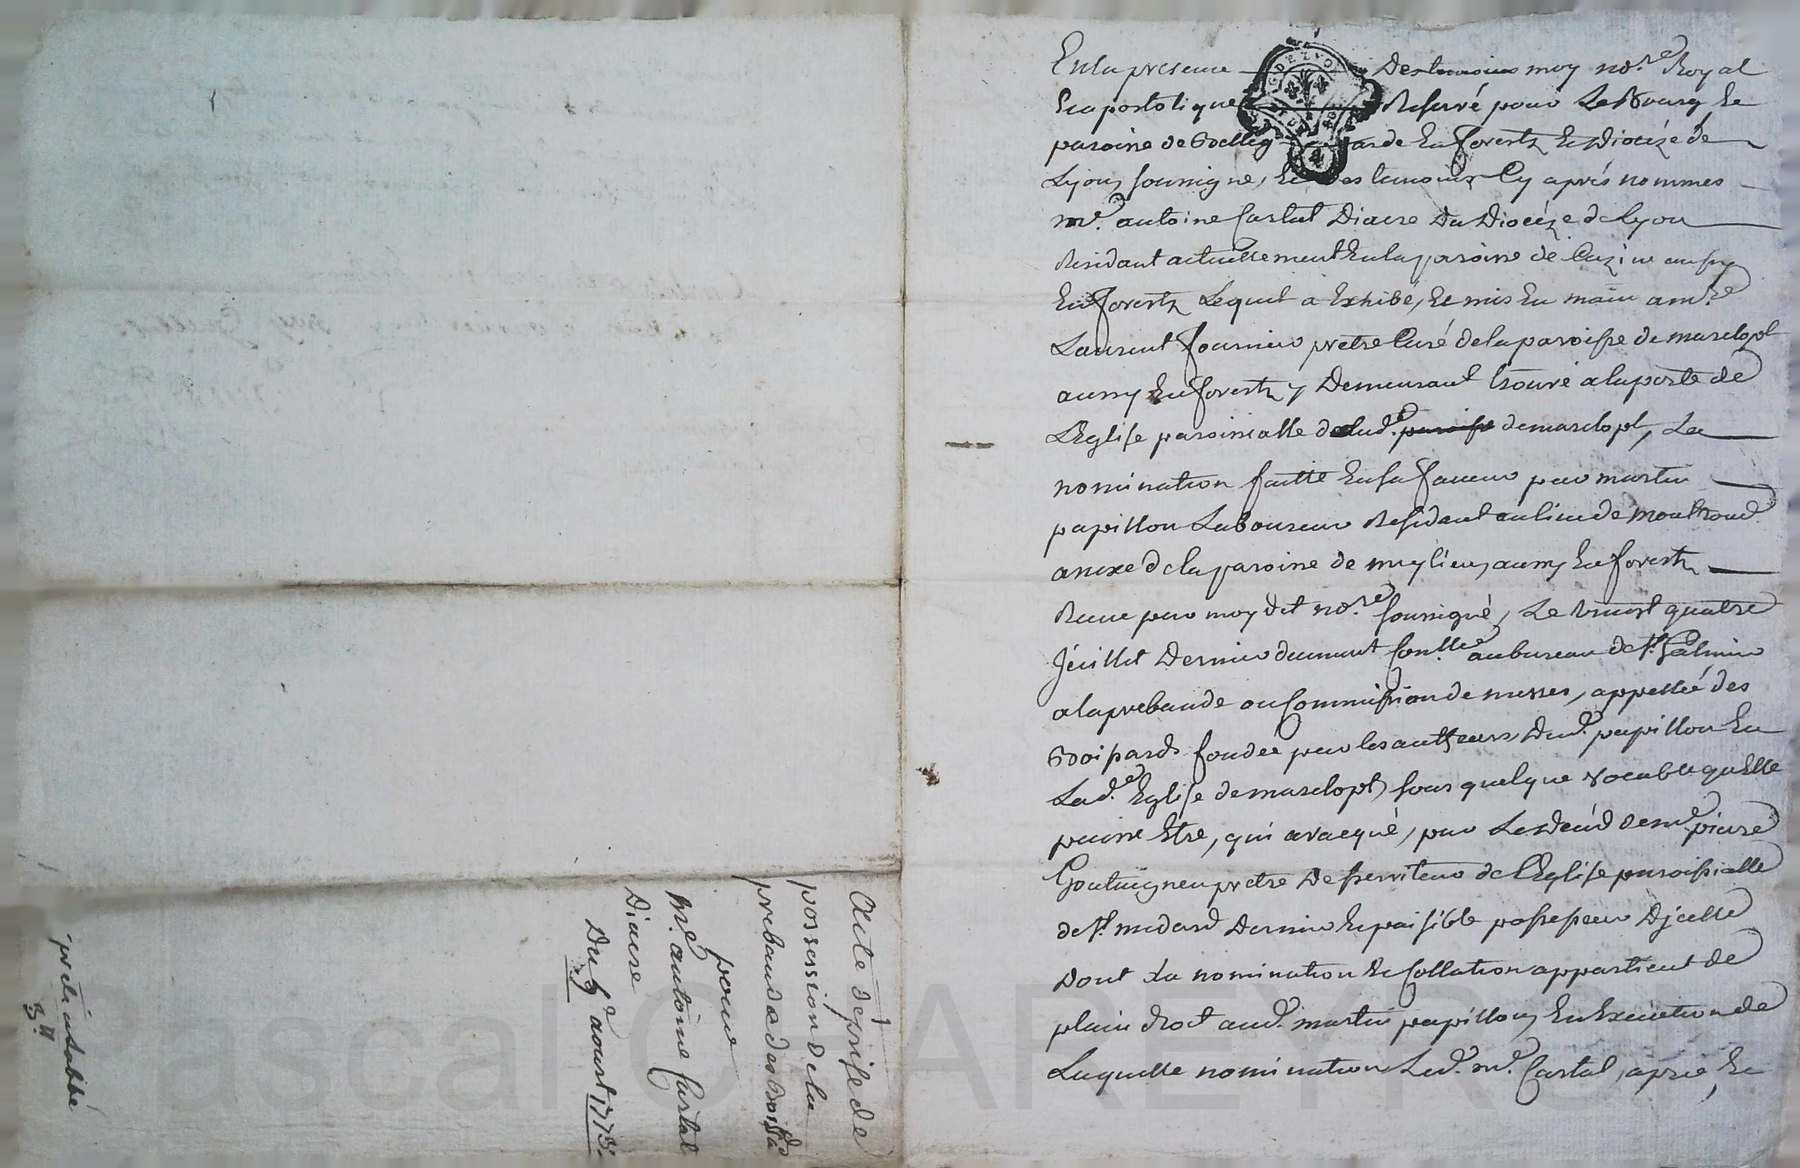 En la presence Des temoins moy no.re Royal
Et apostolique Reservé pour Le Bourg Et
paroisse de Bellegarde En forestz Et Dioceze de
Lyon soussigné, Et Des temoins Cy aprés nommes
m.e antoine Castal Diacre Du Dioceze de Lyon
Residant actuellement En la paroisse de Cuzieu aussy
En forestz Lequel a Exhibé, Et mis En main a m.re
Laurent fournier pretre Curé de la paroisse de marclopt
aussy En forestz y Demeurant trouvé a la porte de
L'Eglise paroissialle de lad. de marclopt, La
nomination faitte En sa faveur par martin
papillon Laboureur Residant au lieu de montrond
anexe de la paroisse de meylieu aussy En forestz
Recue par moy dit no.re soussigné, Le vingt quatre
Jüillet Dernier duement Con.llée au bureau de S.t Galmier
a la prebande ou Commission de messes, appellée des
Boissards fondée par les autheurs Dud. papillon En
Lad. Eglise de marclopt, sous quelque vocable quelle
puisse Etre, qui a vacqué, par Le deüd de m.e pierre
pretre Desserviteur de L'Eglise paroissialle
de S.t medard Dernier Et paisible possesseur D'jcelle
Dont La nomination Et Collation appartient de
plain droit aud. martin papillon, En Execution de
Laquelle nomination Led. m.e Castal, aprié, Et
Acte de prise de
possession de la
prebande des
pour
M.e antoine Castal
Diacre
Du 5e aoust 1773.
3.tt
Pascal CHAREYRON